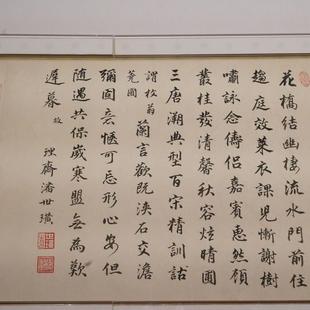 花橋結幽棲流水門前住
趨庭效萊衣課兒慚謝樹
嘯詠念儔侶嘉賓惠然顧
叢桂發清馨秋容炫晴圃
三唐溯典型百宋精訓詁
謂枚翁
蕘圃
蘭言歡既浹石交澹
彌固意愜可忘形心安但
隨遇共保歲寒盟無為歎
遲暮
理齋潘世璜